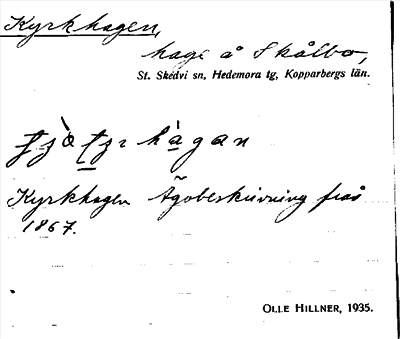 Kyrkhagen,
hage å Skålbo,
St. Skedvi sn, Hedemora tg, Kopparbergs län.
Kyrkhagen Ägobeskrivning från
1867.
OLLE HILLNER, 1935.